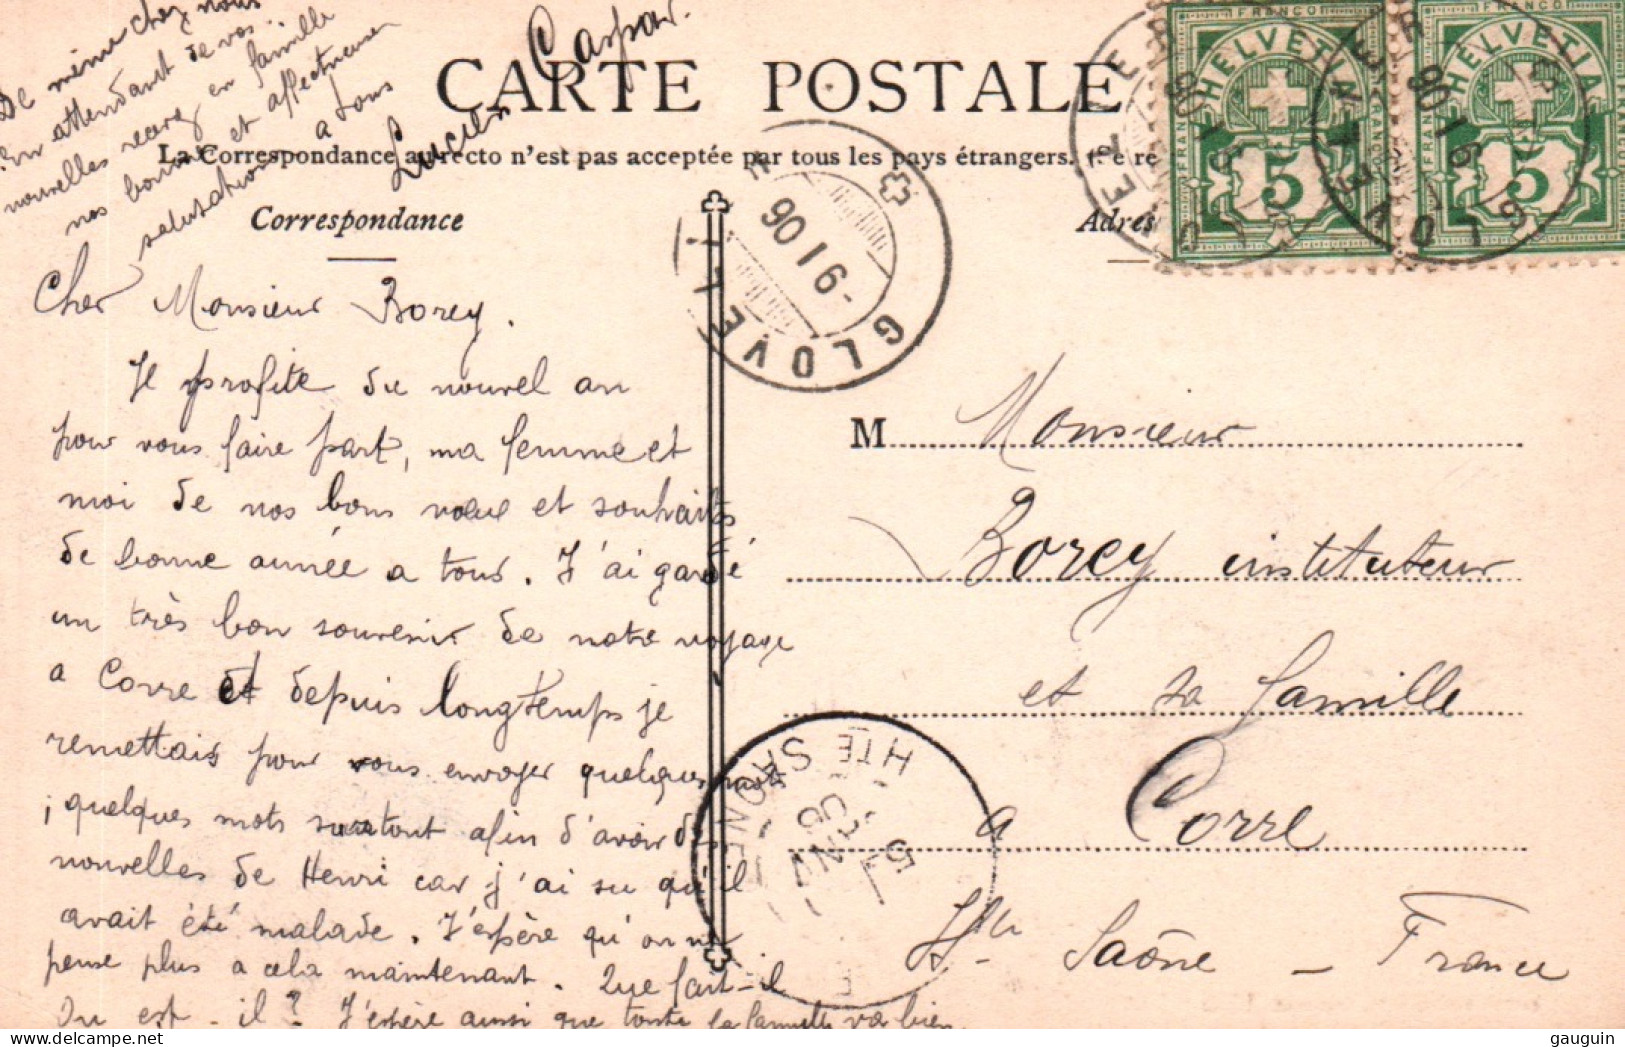 De même chez nous
En attendant de vos
nouvelles recevez en famille
nos bonnes et affectueuses
salutations a tous
Lucien Caspar.
CARTE POSTALE
La Correspondance au recto n'est pas acceptée par tous les pays étrangers.
Correspondance
Adres
FRANCO
HELVETIA
5
FRANCO
HELVETIA
5
GLOVELIER
-9 I 06
GLOVELIER
-9 I 06
Cher Monsieur Borey.
Je profite du nouvel an
pour vous faire part, ma femme et
moi de nos bons vœux et souhaits
de bonne année a tous. J'ai gardé
un très bon souvenir de notre voyage
a Corre et depuis longtemps je
remettais pour vous envoyer quelques mots
quelques mots surtout afin d'avoir des
nouvelles de Henri car j'ai su qu'il
avait été malade. J'espère qu'on ne
pense plus a cela maintenant. Que fait-il
Ou est-il? J'espère aussi que toute la famille va bien
M Monsieur
Borey instituteur
et sa famille
a Corre
Hte Saône - France
HTE SAONE
gauguin @ delcampe.net